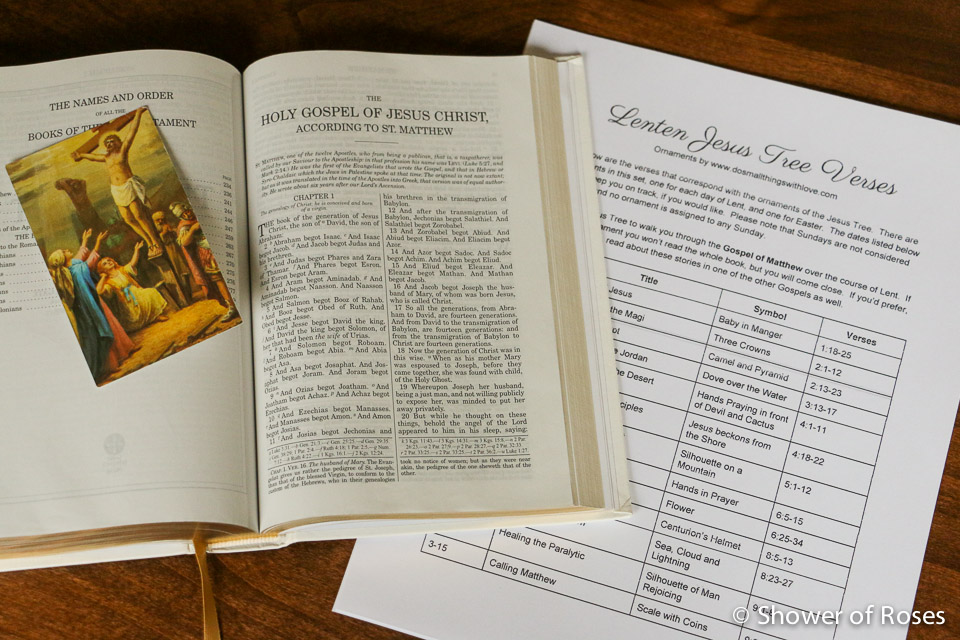 THE NAMES AND ORDER
OF ALL THE
BOOKS OF THE
TAMENT
THE
HOLY GOSPEL OF JESUS CHRIST,
ACCORDING TO ST. MATTHEW
ST. MATTHEW, one of the twelve Apostles, who from being a publican, that is, a taxgatherer, was
called by our Saviour to the Apostleship: in that profession his name was LEVI (Luke 5:27, and
Mark 2:14.) He was the first of the Evangelists that wrote the Gospel, and that in Hebrew or
Syro-Chaldaic which the Jews in Palestine spoke at that time. The original is not now extant;
but as it was translated in the time of the Apostles into Greek, that version was of equal author-
ity. He wrote about six years after our Lord's Ascension.
CHAPTER 1
The genealogy of Christ: he is conceived and born
of a virgin.
THE book of the generation of Jesus
Christ, the son of David, the son of
Abraham:
2 Abraham begot Isaac. And Isaac
begot Jacob. And Jacob begot Judas and
his brethren.
3 And Judas begot Phares and Zara
of Thamar. And Phares begot Esron.
And Esron begot Aram.
4 And Aram begot Aminadab. And
Aminadab begot Naasson. And Naasson
begot Salmon.
5 And Salmon begot Booz of Rahab.
And Booz begot Obed of Ruth. And
Obed begot Jesse.
6 And Jesse begot David the king.
And David the king begot Solomon, of
her that had been the wife of Urias.
7 And Solomon begot Roboam.
And Roboam begot Abia. And Abia
begot Asa.
8 And Asa begot Josaphat. And Jos-
aphat begot Joram. And Joram begot
Ozias.
9 And Ozias begot Joatham. And
Joatham begot Achaz. And Achaz begot
Ezechias.
10 And Ezechias begot Manasses.
And Manasses begot Amon. And Amon
begot Josias.
11 And Josias begot Jechonias and
CHAP. 1. VER. 16. The husband of Mary. The Evan-
gelist gives us rather the pedigree of St. Joseph,
than that of the blessed Virgin, to conform to the
custom of the Hebrews, who in their genealogies
his brethren in the transmigration of
Babylon.
12 And after the transmigration of
Babylon, Jechonias begot Salathiel. And
Salathiel begot Zorobabel.
13 And Zorobabel begot Abiud. And
Abiud begot Eliacim. And Eliacim begot
Azor.
14 And Azor begot Sadoc. And Sadoc
begot Achim. And Achim begot Eliud.
15 And Eliud begot Eleazar. And
Eleazar begot Mathan. And Mathan
begot Jacob.
16 And Jacob begot Joseph the hus-
band of Mary, of whom was born Jesus,
who is called Christ.
17 So all the generations, from Abra-
ham to David, are fourteen generations.
And from David to the transmigration of
Babylon, are fourteen generations: and
from the transmigration of Babylon to
Christ are fourteen generations.
18 Now the generation of Christ was in
this wise. When as his mother Mary
was espoused to Joseph, before they
came together, she was found with child,
of the Holy Ghost.
19 Whereupon Joseph her husband,
being a just man, and not willing publicly
to expose her, was minded to put her
away privately.
20 But while he thought on these
things, behold the angel of the Lord
appeared to him in his sleep, saying:
took no notice of women; but as they were near
akin, the pedigree of the one sheweth that of the
other.
Lenten Jesus Tree Verses
Ornaments by www.dosmallthingswithlove.com
ow are the verses that correspond with the ornaments of the Jesus Tree. There are
ents in this set, one for each day of Lent, and one for Easter. The dates listed below
eep you on track, if you would like. Please note that Sundays are not considered
nd no ornament is assigned to any Sunday.
us Tree to walk you through the Gospel of Matthew over the course of Lent. If
ment you won't read the whole book, but you will come close. If you'd prefer,
read about these stories in one of the other Gospels as well.
Title Symbol Verses
Jesus Baby in Manger 1:18-25
the Magi Three Crowns 2:1-12
Camel and Pyramid 2:13-23
e Jordan Dove over the Water 3:13-17
the Desert Hands Praying in front of Devil and Cactus 4:1-11
ciples Jesus beckons from the Shore 4:18-22
Silhouette on a Mountain 5:1-12
Hands in Prayer 6:5-15
Flower 6:25-34
Centurion's Helmet 8:5-13
Sea, Cloud and Lightning 8:23-27
3-15 Healing the Paralytic Silhouette of Man Rejoicing
Calling Matthew Scale with Coins
© Shower of Roses